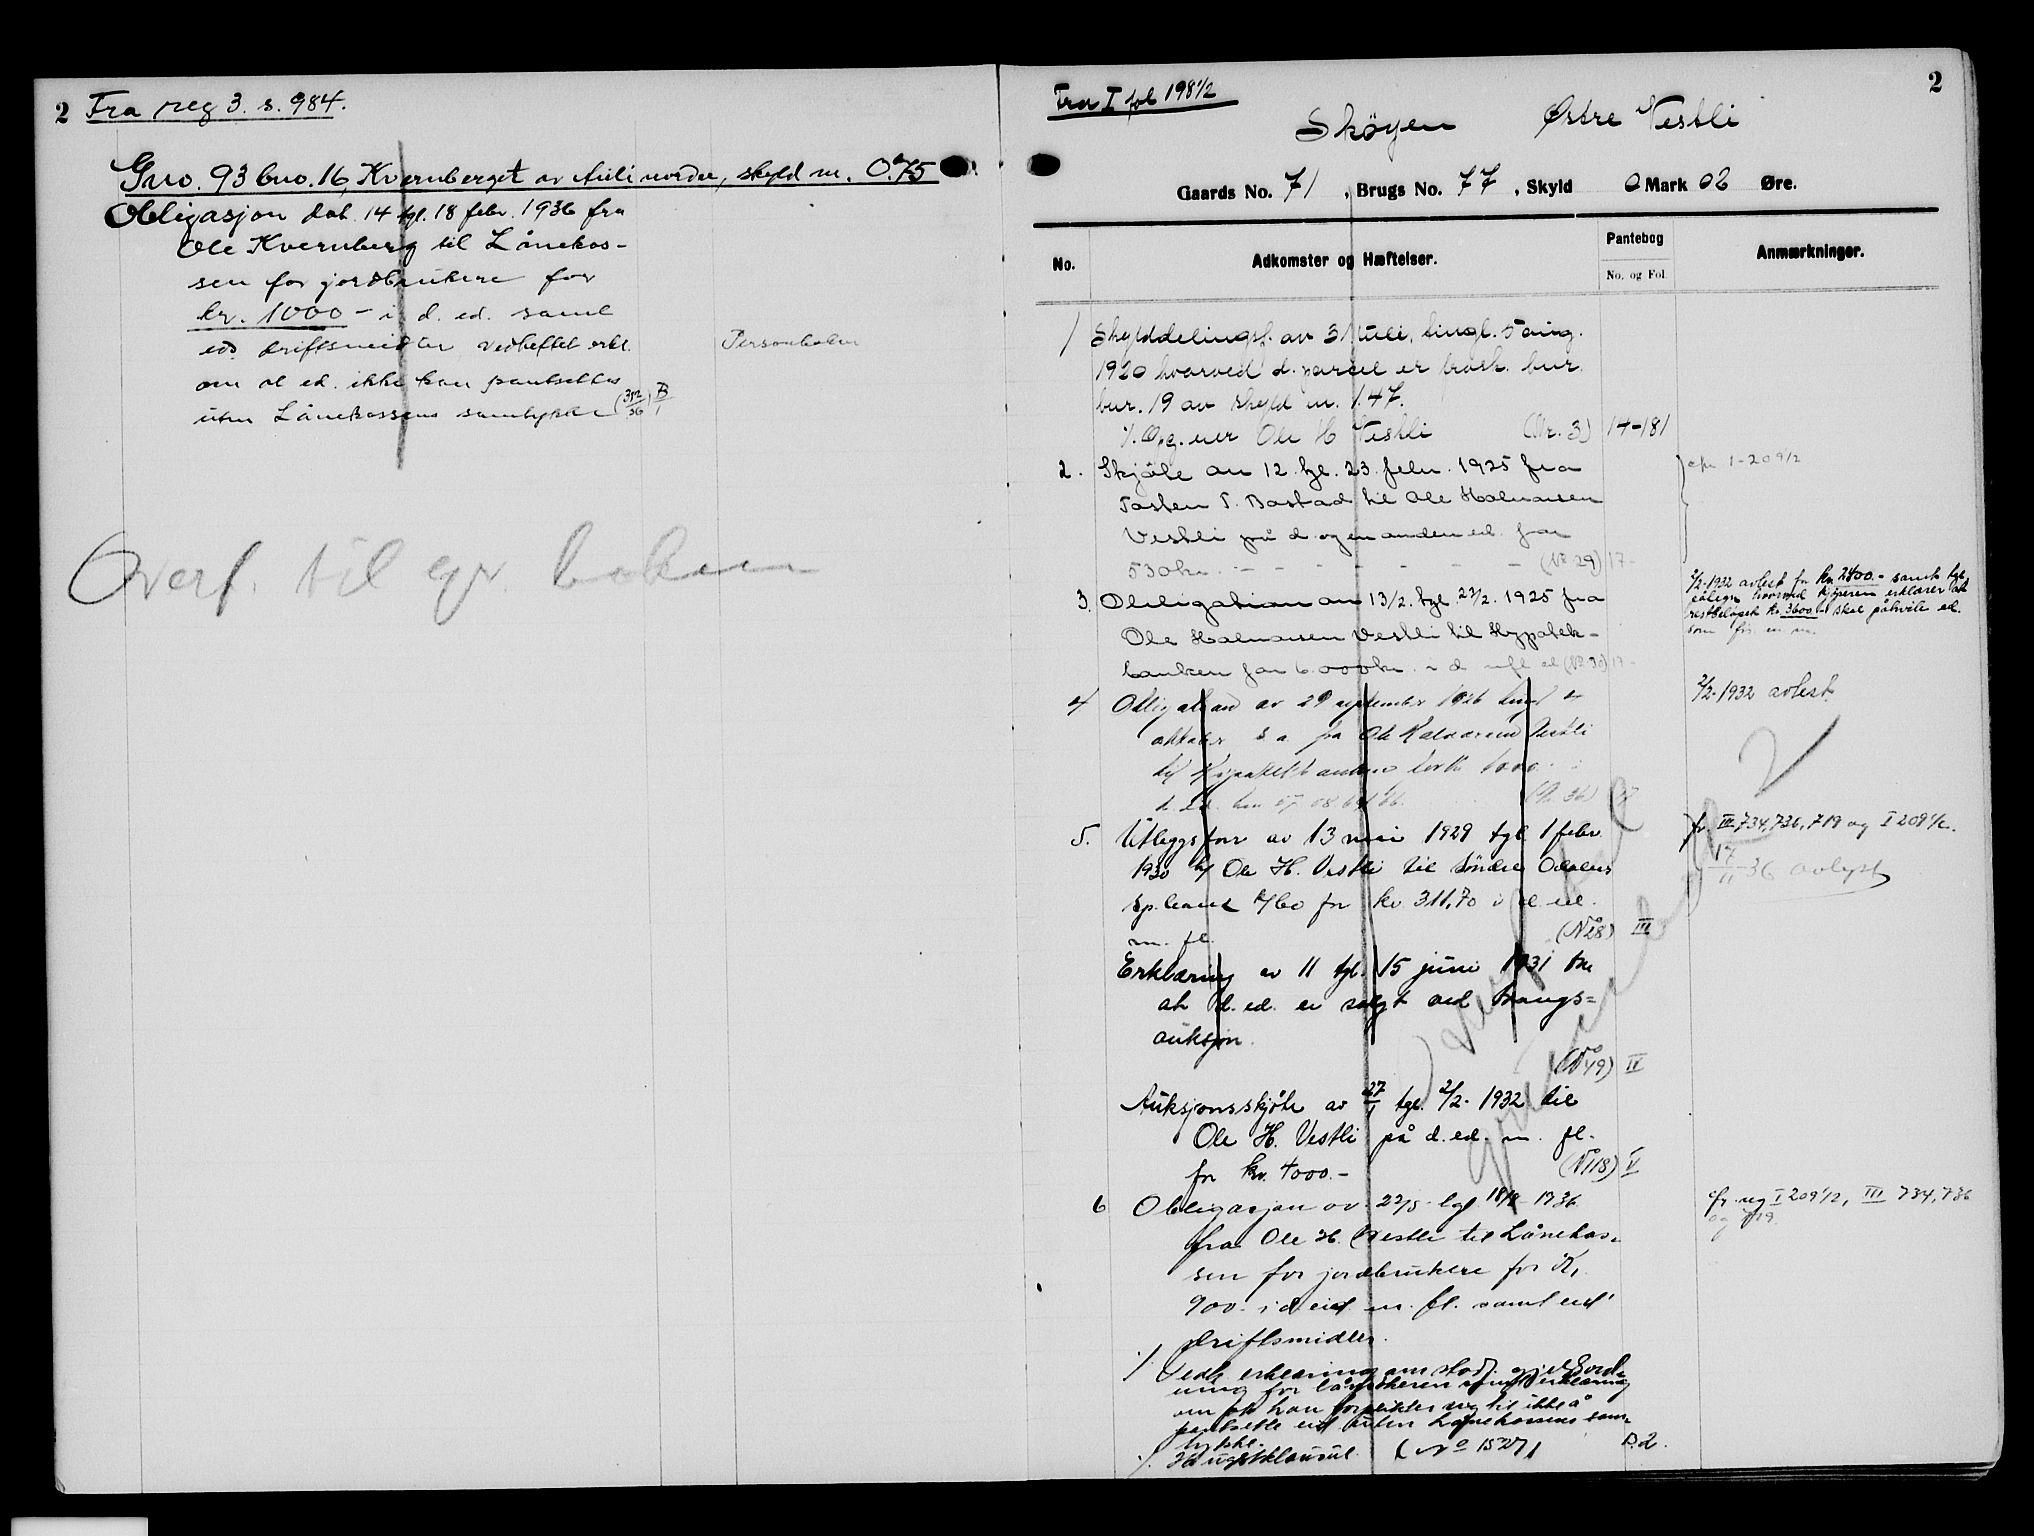 2 Fra reg 3. s. 984.
Gno. 93 bno. 16, Kvernberget av Auli nordre, skyld m. 0.75
Obligasjon dat. 14 tgl. 18 febr. 1936 fra
Ole Kvernberg til Lånekas-
sen for jordbrukere for
kr. 1000 - i d. ed. samt
ed. driftsmidler vedheftet erkl.
om at ed. ikke kan pantsettes
uten Lånekassens samtykke (352/36) B/1
Personbolen
Overf. til gr. boken
Fra I fol 198 1/2
2
Skøyen Østre Vestli
Gaards No. 71, Brugs No. 77, Skyld 0 Mark 02 Øre.
No. Adkomster og Hæftelser. Pantebog No. og Fol. Anmærkninger.
1 Skylddelingsf. av 31 juli, tingl. 5 aug.
1920 hvorved d. parcel er frask. bnr.
bnr. 19 av skyld m. 1.47.
Ole H Vestli (Nr. 3) 14-181
2. Skjøte av 12 tgl. 23. febr. 1925 fra
Torsten T. Bastad til Ole Halvorsen
Vestli på d. og en anden ed. for
530 kr. - - - - - - (No 29) 17-
cfr 1-209 1/2
3. Obligation av 13/2. tgl. 23/2. 1925 fra
Ole Halvorsen Vestli til Hypotek-
banken for 6.000 kr. i d. mfl ed (No 30) 17-
2/2-1932 avlest for kr. 2400.- samt tgl.
påtegn. hvorved kjøperen erklærer at
restbeløpet kr. 3600.- skal påhvile ed.
som før.
4 Obligation av 29 september 1926 tingl 4
oktober s. a. fra Ole Halvorsen Vestli
til Hypotekbanken 1000
(No 36)
2/2-1932 avlest
5. Utleggsforr av 13 mai 1929 tgl. 1 febr
1930 hj Ole H. Vestli til Søndre Odalens
sp.bank for kr. 311,70 i d. ed.
m. fl. (No 28) III
fr. III 734, 736, 719 og I 209 1/2.
17/11-36 avlyst
Erklæring av 11 tgl. 15 juni 1931 om
at d. ed. er solgt ved tvangs=
auksjon.
(No 49) IV
Auksjonsskjøte av 27/1 tgl. 2/2- 1932 til
Ole H. Vestli på d. ed. m. fl.
for kr. 4000.- (No 118) V
6 Obligasjon av 22/5 tgl 18/8 1936
fra Ole H. Vestli til Lånekas-
sen for jordbrukere for kr.
900.- i d. eid. m. fl. samt eid'
driftsmidler.
cfr. reg I 209 1/2, III 734, 736
og 719.
Vedh. erklæring om
for låntakeren samt erklæring
om at han forplikter sig til ikke å
pantsette eid uten Lånekassens sam-
tykke.
(No 1527) B. 2.